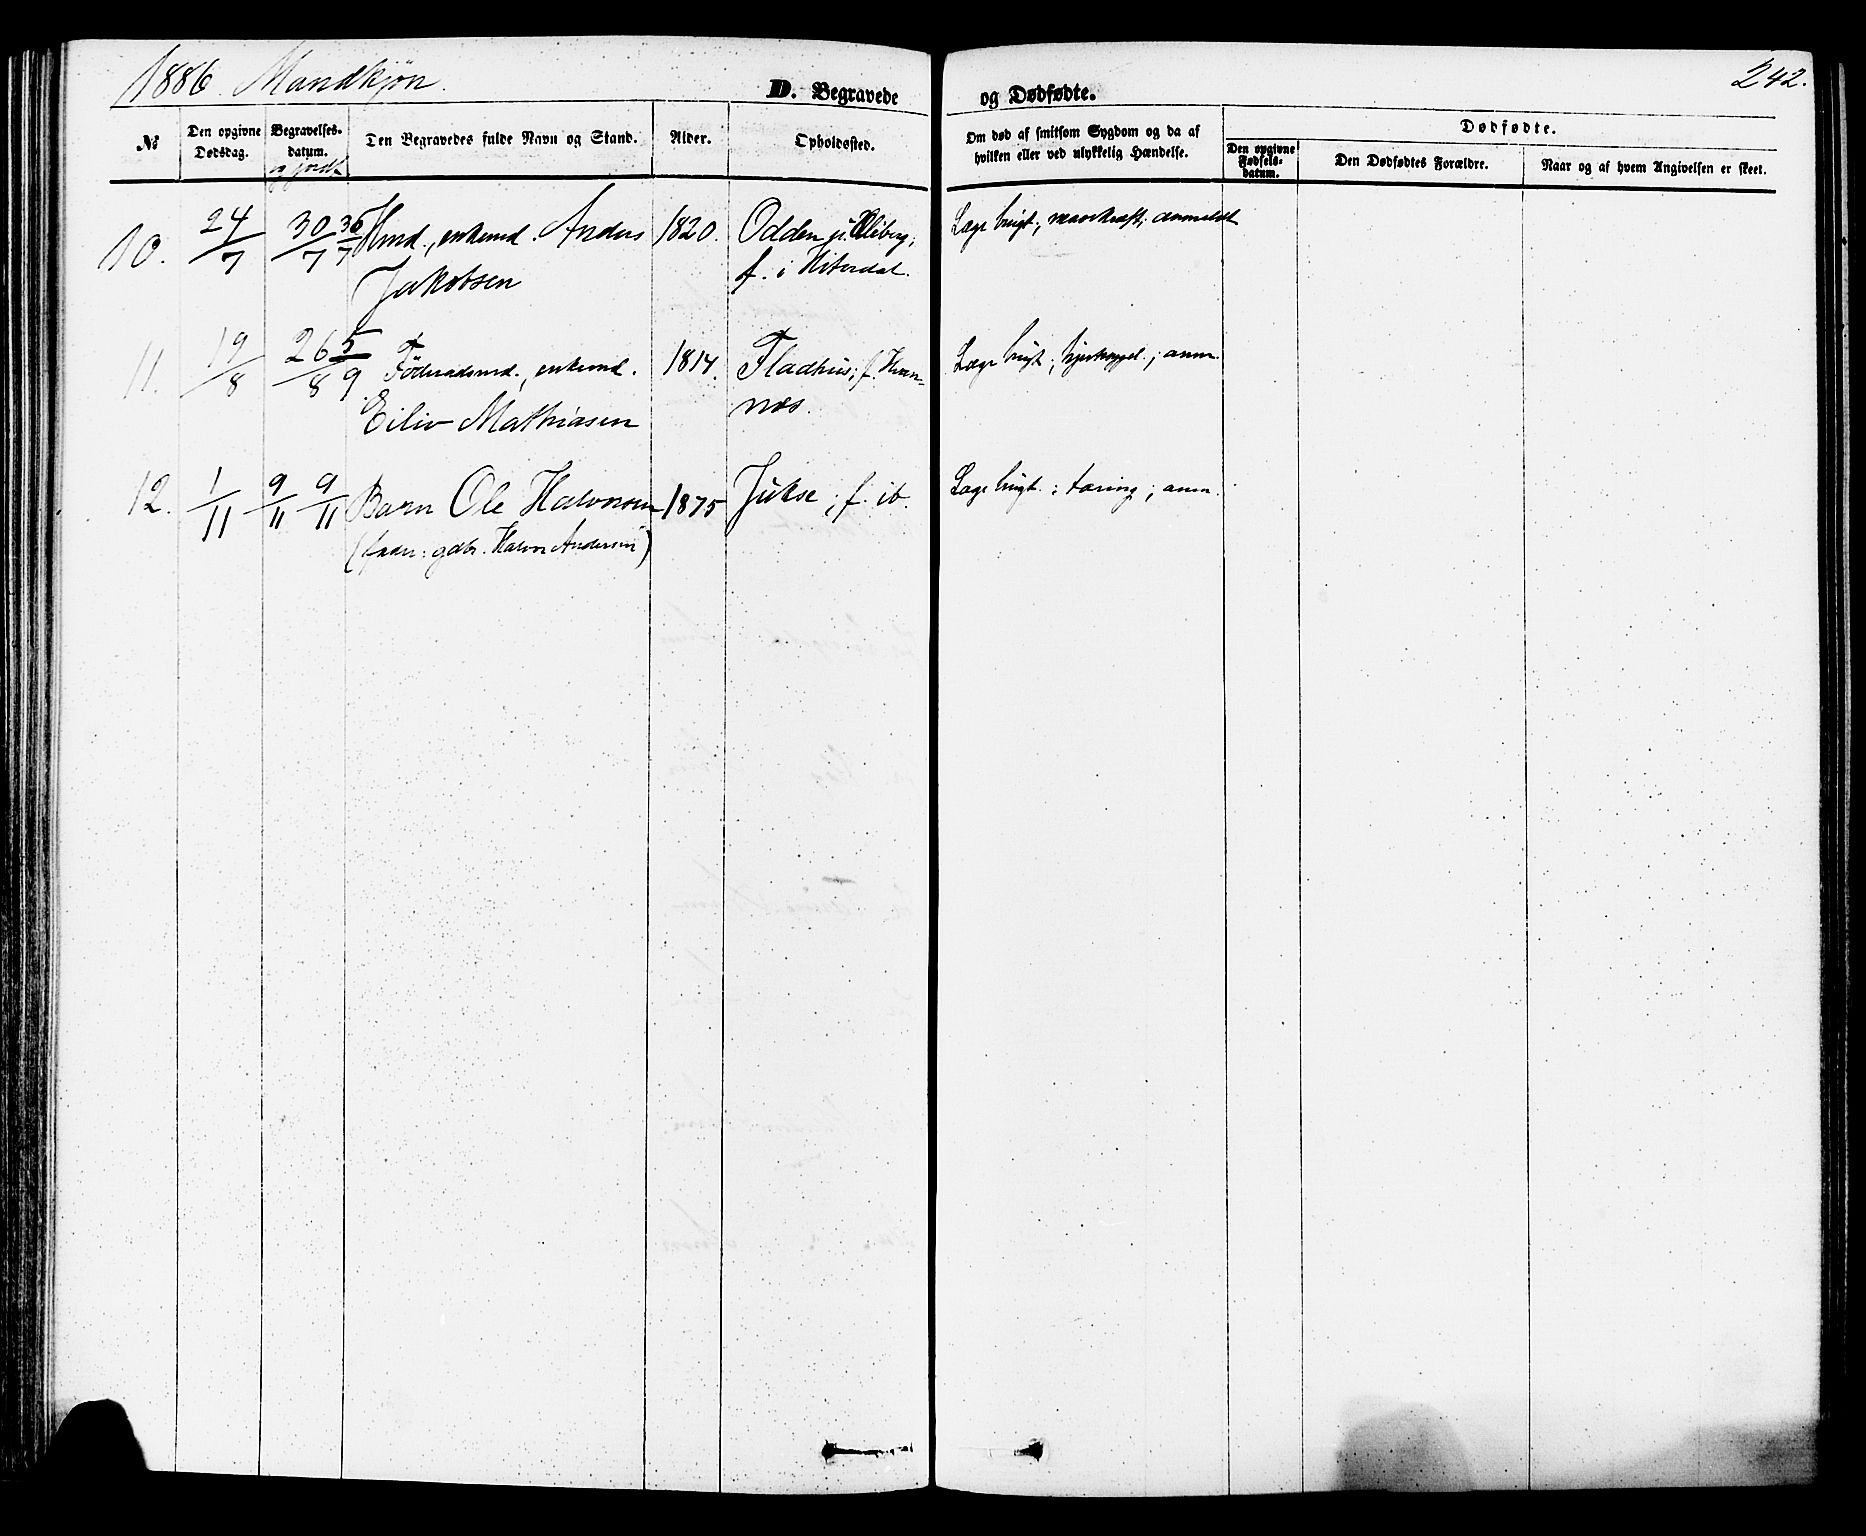 1886. Mandkjøn.
D. Begravede og Dødfødte.
242.
№
Den opgivne Dødsdag.
Begravelses-datum.
og jordf.
Den Begravedes fulde Navn og Stand.
Alder.
Opholdssted.
Om død af smitsom Sygdom og da af hvilken eller ved ulykkelig Hændelse.
Dødfødte.
Den opgivne Fødsels-datum.
Den Dødfødtes Forældre.
Naar og af hvem Angivelsen er skeet.
10. 24/7 30/7 30/7 Hmd., enkemd. Anders 1820. Odden Læge brugt; anmeldt
Jakobsen f. i Hiterdal.
11. 19/8 26/8 5/9 Föderaadsmd., enkemd. 1814. Fladhus; f. Læge brugt; anm.
Eiliv Mathiasen næs.
12. 1/11 9/11 9/11 Barn Ole Halvorsen 1875 Jukse; f. ib. Læge brugt: tæring; anm.
(fader: gdbr. Halvor Andersen)